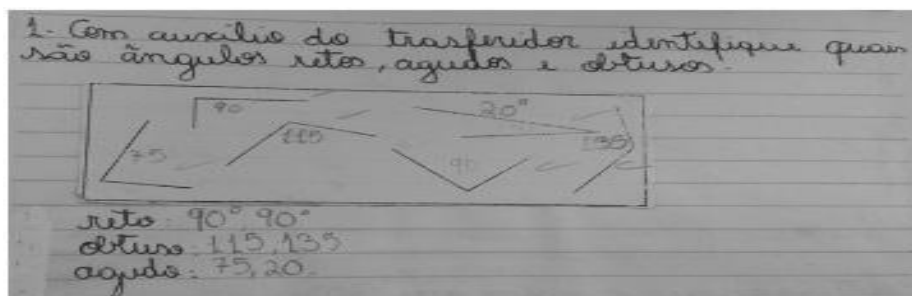 1- Com auxílio do trasferidor identifique quais
são ângulos retos, agudos e obtusos.
90
20°
115
135
75
90
reto: 90°, 90°
obtuso: 115, 135
agudo: 75, 20